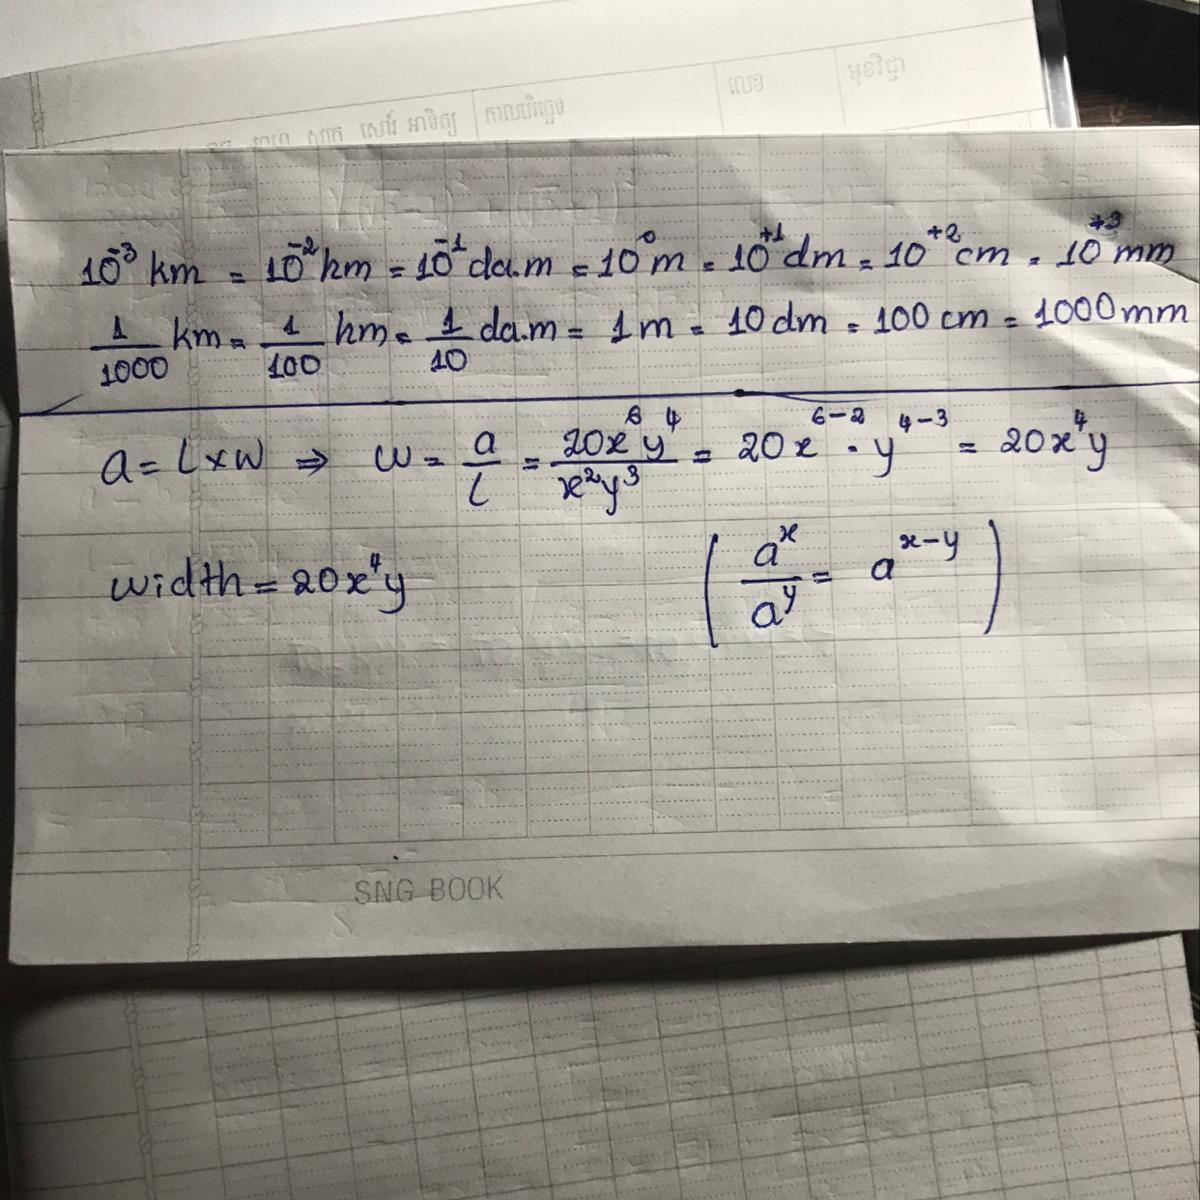 សុក្រ សៅរ៍ អាទិត្យ កាលបរិច្ឆេទ លេខ មុខវិជ្ជា
10⁻³ km = 10⁻² hm = 10⁻¹ da.m = 10⁰ m = 10⁺¹ dm = 10⁺² cm = 10⁺³ mm
1/1000 km = 1/100 hm = 1/10 da.m = 1 m = 10 dm = 100 cm = 1000 mm
a = l × w ⇒ w = a/l = 20x⁶y⁴/x²y³ = 20x⁶⁻² · y⁴⁻³ = 20x⁴y
width = 20x⁴y (aˣ/aʸ = aˣ⁻ʸ)
SNG BOOK